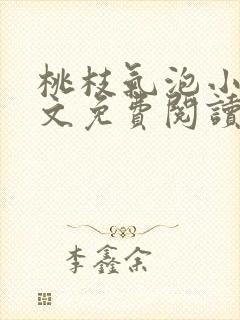 桃枝氣泡小
文免費閱讀
李鑫余